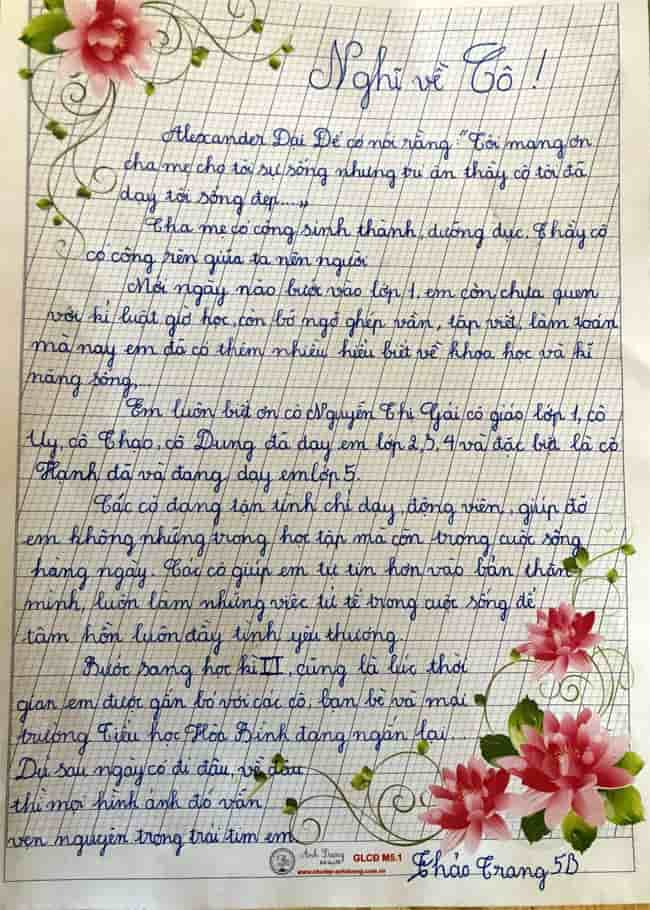 Nghĩ về Cô !
Alexander Đại Đế có nói rằng "Tôi mang ơn
cha mẹ cho tôi sự sống nhưng tri ân thầy cô tôi đã
dạy tôi sống đẹp....„
Cha mẹ có công sinh thành, dưỡng dục. Thầy cô
có công rèn giũa ta nên người
Mới ngày nào bước vào lớp 1, em còn chưa quen
với kỉ luật giờ học, còn bỡ ngỡ ghép vần, tập viết, làm toán
mà nay em đã có thêm nhiều hiểu biết về khoa học và kĩ
năng sống,...
Em luôn biết ơn cô Nguyễn Thị Gái cô giáo lớp 1, cô
Uy, cô Thạo, cô Dung đã dạy em lớp 2, 3, 4 và đặc biệt là cô
Hạnh đã và đang dạy em lớp 5.
Các cô đang tận tình chỉ dạy, động viên, giúp đỡ
em không những trong học tập mà còn trong cuộc sống
hàng ngày. Các cô giúp em tự tin hơn vào bản thân
mình, luôn làm những việc tử tế trong cuộc sống để
tâm hồn luôn đầy tình yêu thương.
Bước sang học kì II, cũng là lúc thời
gian em được gắn bó với các cô, bạn bè và mái
trường Tiểu học Hòa Bình đang ngắn lại...
Dù sau ngày có đi đâu, về đâu
thì mọi hình ảnh đó vẫn
vẹn nguyên trong trái tim em
Ánh Dương
GLCD M5.1
www.chudep-anhduong.com.vn
Thảo Trang 5B